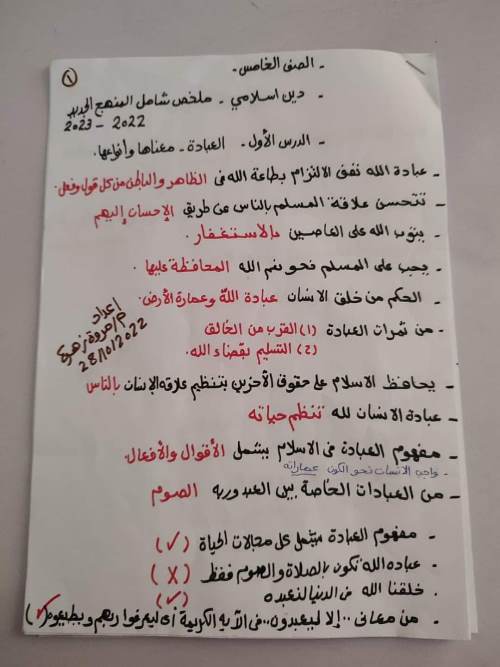 ١
- الصف الخامس.
- دين اسلامي - ملخص شامل المنهج الجديد
2022 - 2023
- الدرس الأول - العبادة - معناها وأنواعها.
- عبادة الله تفق الالتزام بطاعة الله فى الظاهر والباطن من كل قول وفعل.
- تتحسن علاقة المسلم بالناس عن طريق الإحسان إليهم
- يتوب الله على العاصين بالاستغفار.
- يجب على المسلم نحو نعم الله المحافظة عليها.
- الحكم من خلق الانسان عبادة الله وعمارة الأرض.
- من ثمرات العبادة (١) القرب من الخالق
(٢) التسليم بقضاء الله.
اعداد
م/مروة زهرة
28/10/2022
- يحافظ الاسلام على حقوق الآخرين بتنظيم علاقه الإنسان بالناس
- عبادة الانسان لله تنظم حياته
- مفهوم العبادة فى الاسلام يشمل الأقوال والأفعال.
- واجب الانسان نحو الكون عمارته
- من العبادات الخاصة بين العبد وربه الصوم
- مفهوم العبادة يشمل كل مجالات الحياة (✓)
- عباده الله تكون بالصلاة والصوم فقط (X)
- خلقنا الله فى الدنيا لنعبده (✓)
- من معانى .. إلا ليعبدون .. فى الآيه الكريمة أى ليعرفوا ربهم ويطيعوه (✓)